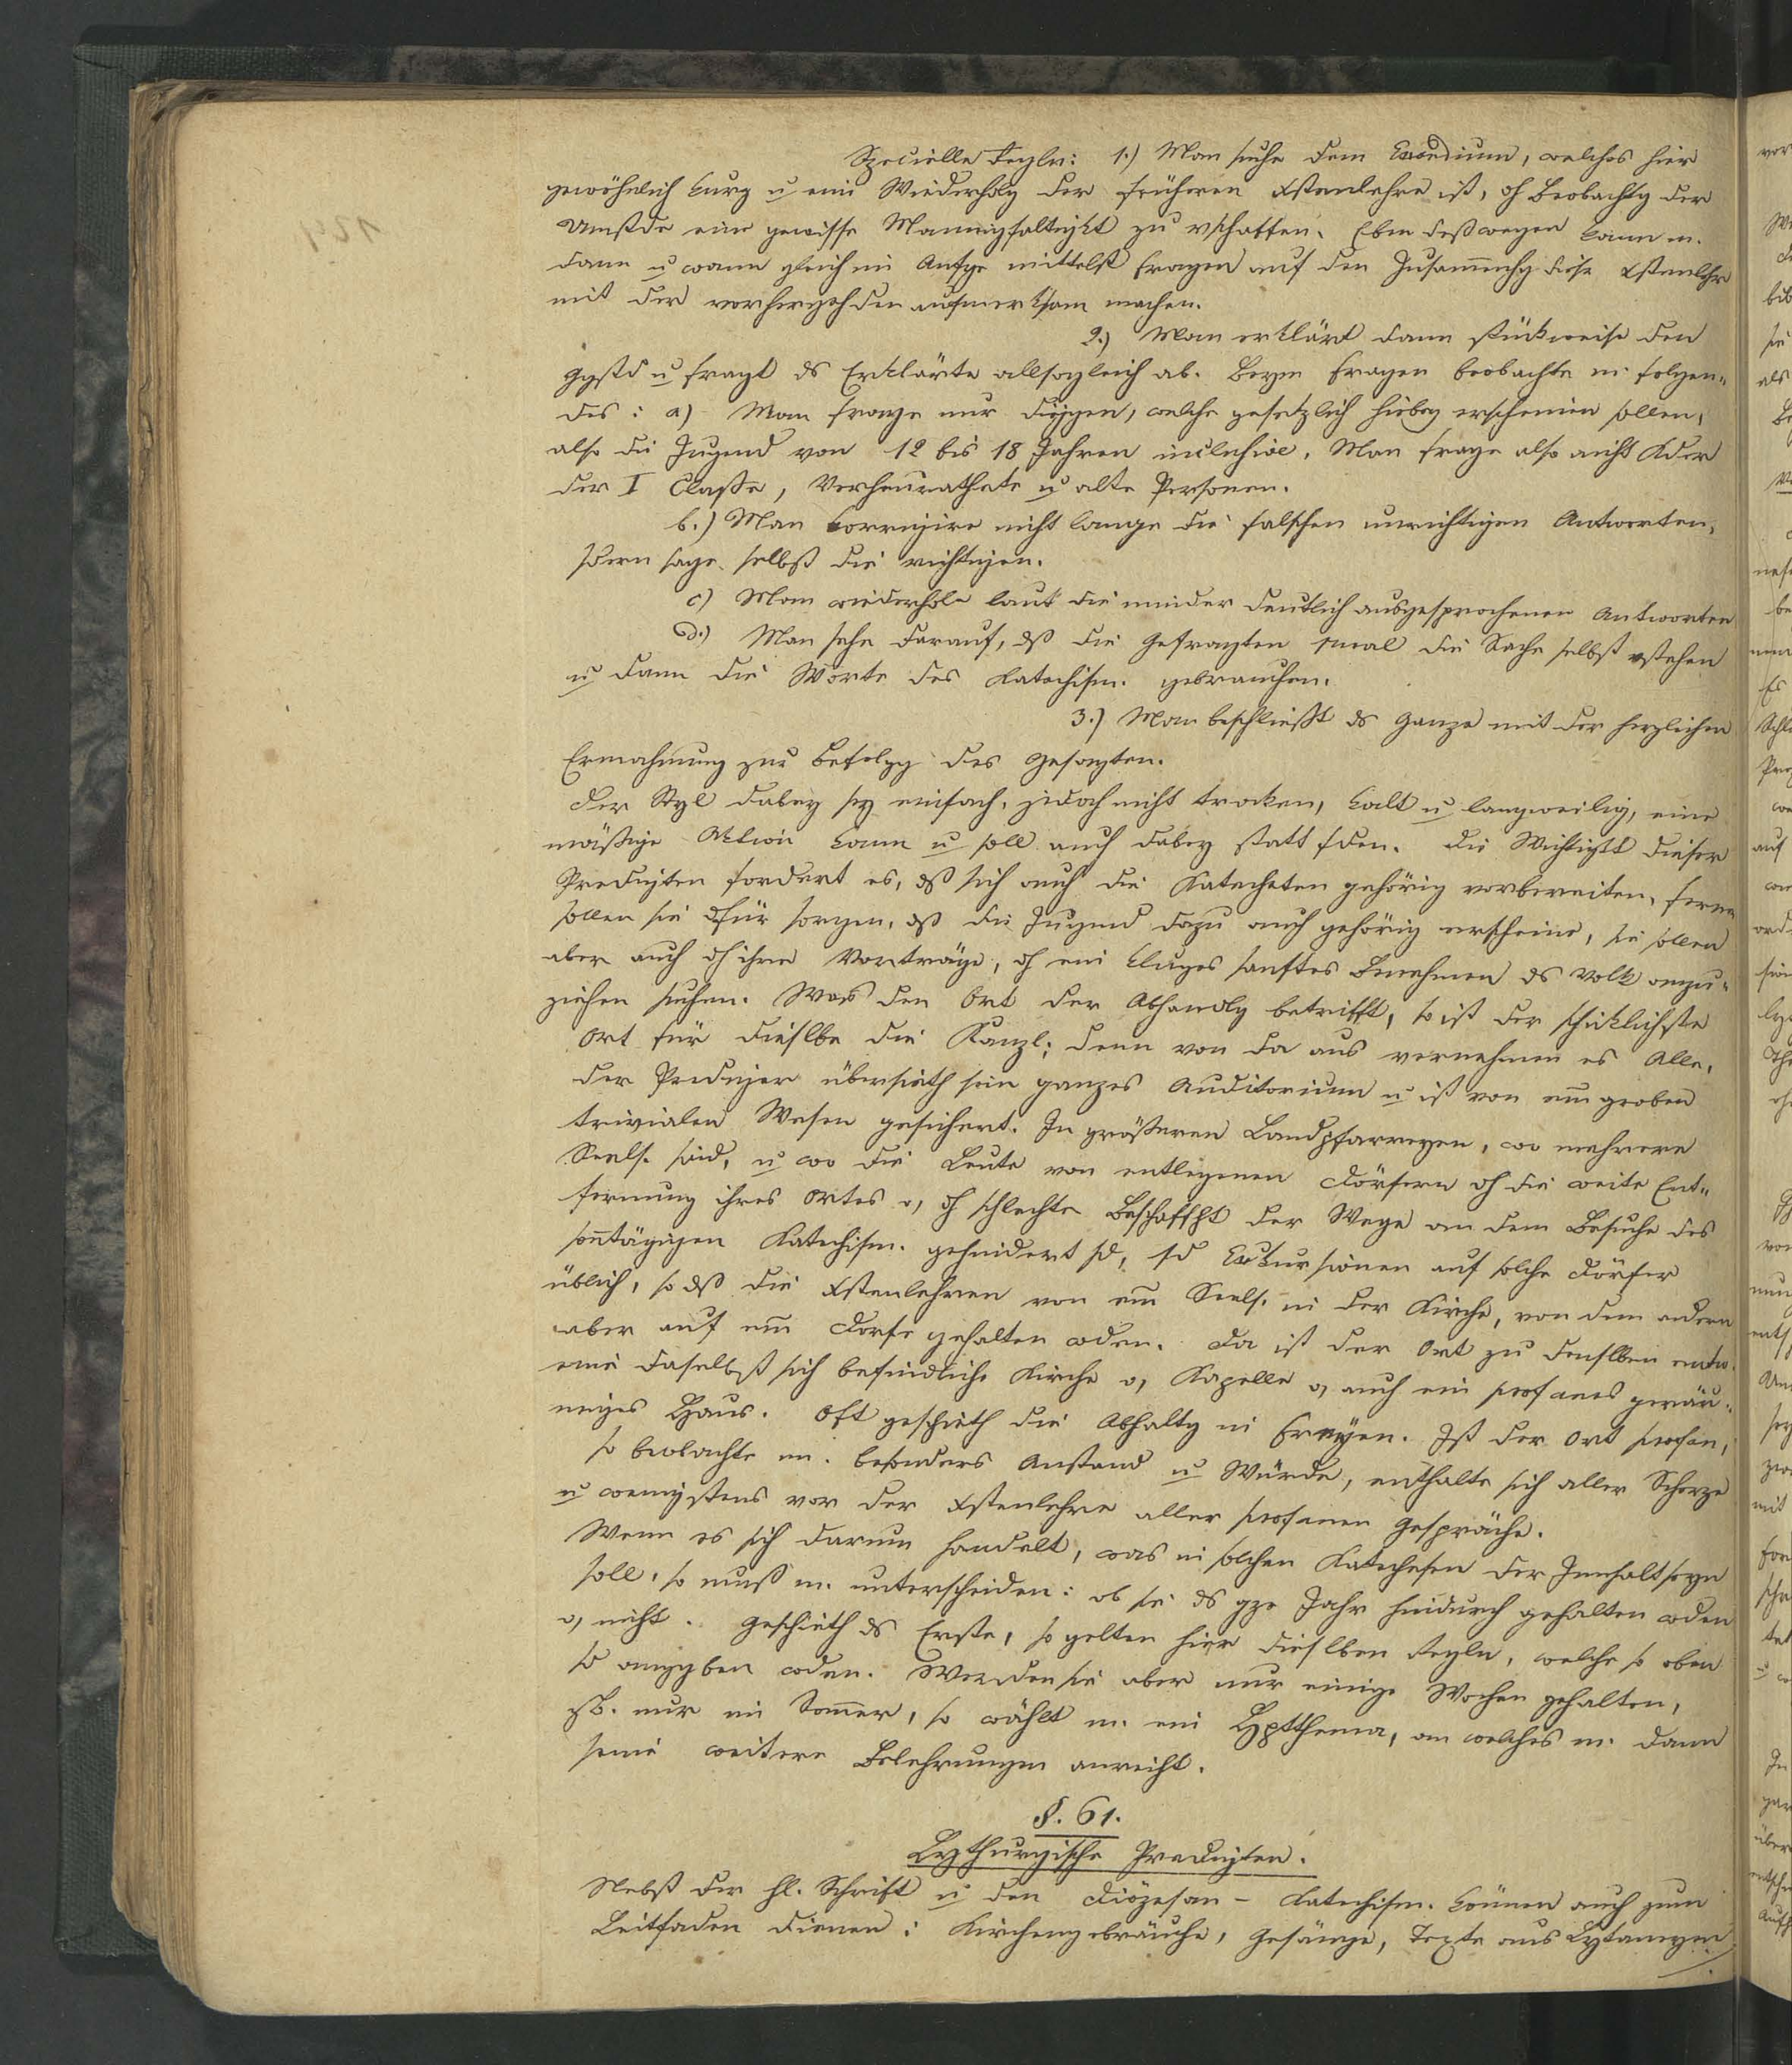 Specielle Regln: 1.) Man suche dem Exordium, welches hier
gewöhnlich kurz u eine Wiederholg der früheren Xstenlehre ist, dh Beobachtg der
Umstde eine gewisse Mannigfaltigkt zu vschaffen. Eben deßwegen kann m.
dann u wann gleich im Anfge mittelst Fragen auf den Zusam̅enhg dieser Xstenlehr
mit der vorhergehden aufmerksam machen.
2.) Man erklärt dann stückweise den
Ggstd u fragt ds Erklärte allsogleich ab. Beym Fragen beobachte m. folgen„
des: a) Man frage nur diejgen, welche gesetzlich hiebey erscheinen sollen,
also die Jugend von 12 bis 18 Jahren inclusive. Man frage also nicht Kder
der I Claße, Verheurathete u alte Personen.
b.) Man korrigire nicht lange die falschen unrichtigen Antworten,
sdern sage selbst die richtigen.
c) Man wiederhole laut die minder deutlich ausgesprochenen Antworten
d.) Man sehe darauf, dß die Gefragten 1mal die Sache selbst vstehen
u dann die Worte des Katechism. gebrauchen.
3.) Man beschließt ds Ganze mit der herzlichen
Ermahnung zur Befolgg des Gesagten.
Der Styl dabey sey einfach, jedoch nicht trocken, kalt u langweilig, eine
mäßige Aktion kann u soll auch dabey statt fden. Die Wichtigkt dieser
Predigten fordert es, dß sich auch die Katecheten gehörig vorbereiten, ferner
sollen sie dfür sorgen, dß die Jugend dazu auch gehörig erscheine, sie sollen
aber auch dh ihre Vorträge, dh ein kluges sanftes Benehmen ds Volk anzu„
ziehen suchen. Was den Ort der Abhandlg betrifft, so ist der schicklichste
Ort für dieslbe die Kanzl; denn von da aus vernehmen es Alle,
der Prediger übersieth sein ganzes Auditorium u ist von em groben
trivialen Wesen gesichert. In größeren Landpfarreyen, wo mehrere
Seels. sind, u wo die Leute von entlegenen Dörfern dh die weite Ent„
fernung ihres Ortes o, dh schlechte Beschaffht der Wege an dem Besuche des
son̅tägigen Katechism. gehindert sd, sd Exkursionen auf solche Dörfer
üblich, so dß die Xstenlehren von em Seels. in der Kirche, von dem andern
aber auf em Dorfe gehalten wden. Da ist der Ort zu denslben entw.
eine daselbst sich befindliche Kirche o, Kapelle o, auch ein profanes geräu„
miges Haus. Oft geschieth die Abhaltg im Freyen. Ist der Ort profan,
so beobachte m. besonders Anstand u Würde, enthalte sich aller Scherze
u wenigstens vor der Xstenlehre aller profanen Gespräche.
Wenn es sich darum handelt, was in solchen Katechesen der Innhalt seyn
soll, so muß m. unterscheiden: ob sie ds gze Jahr hindurch gehalten wden
o, nicht. Geschieth ds Erste, so gelten hier dieslben Regln, welche so oben
sd anggben wden. Werden sie aber nur einige Wochen gehalten,
zB. nur im Som̅er, so wählt m. ein Hptthema, an welches m. dann
seine weitere Belehrungen anreiht.
§. 61.
Lythurgische Predigten.
Nebst der hl. Schrift u den Diözesan - Katechism. können auch zum
Leitfaden dienen: Kirchengebräuche, Gesänge, Texte aus Lytaneyen